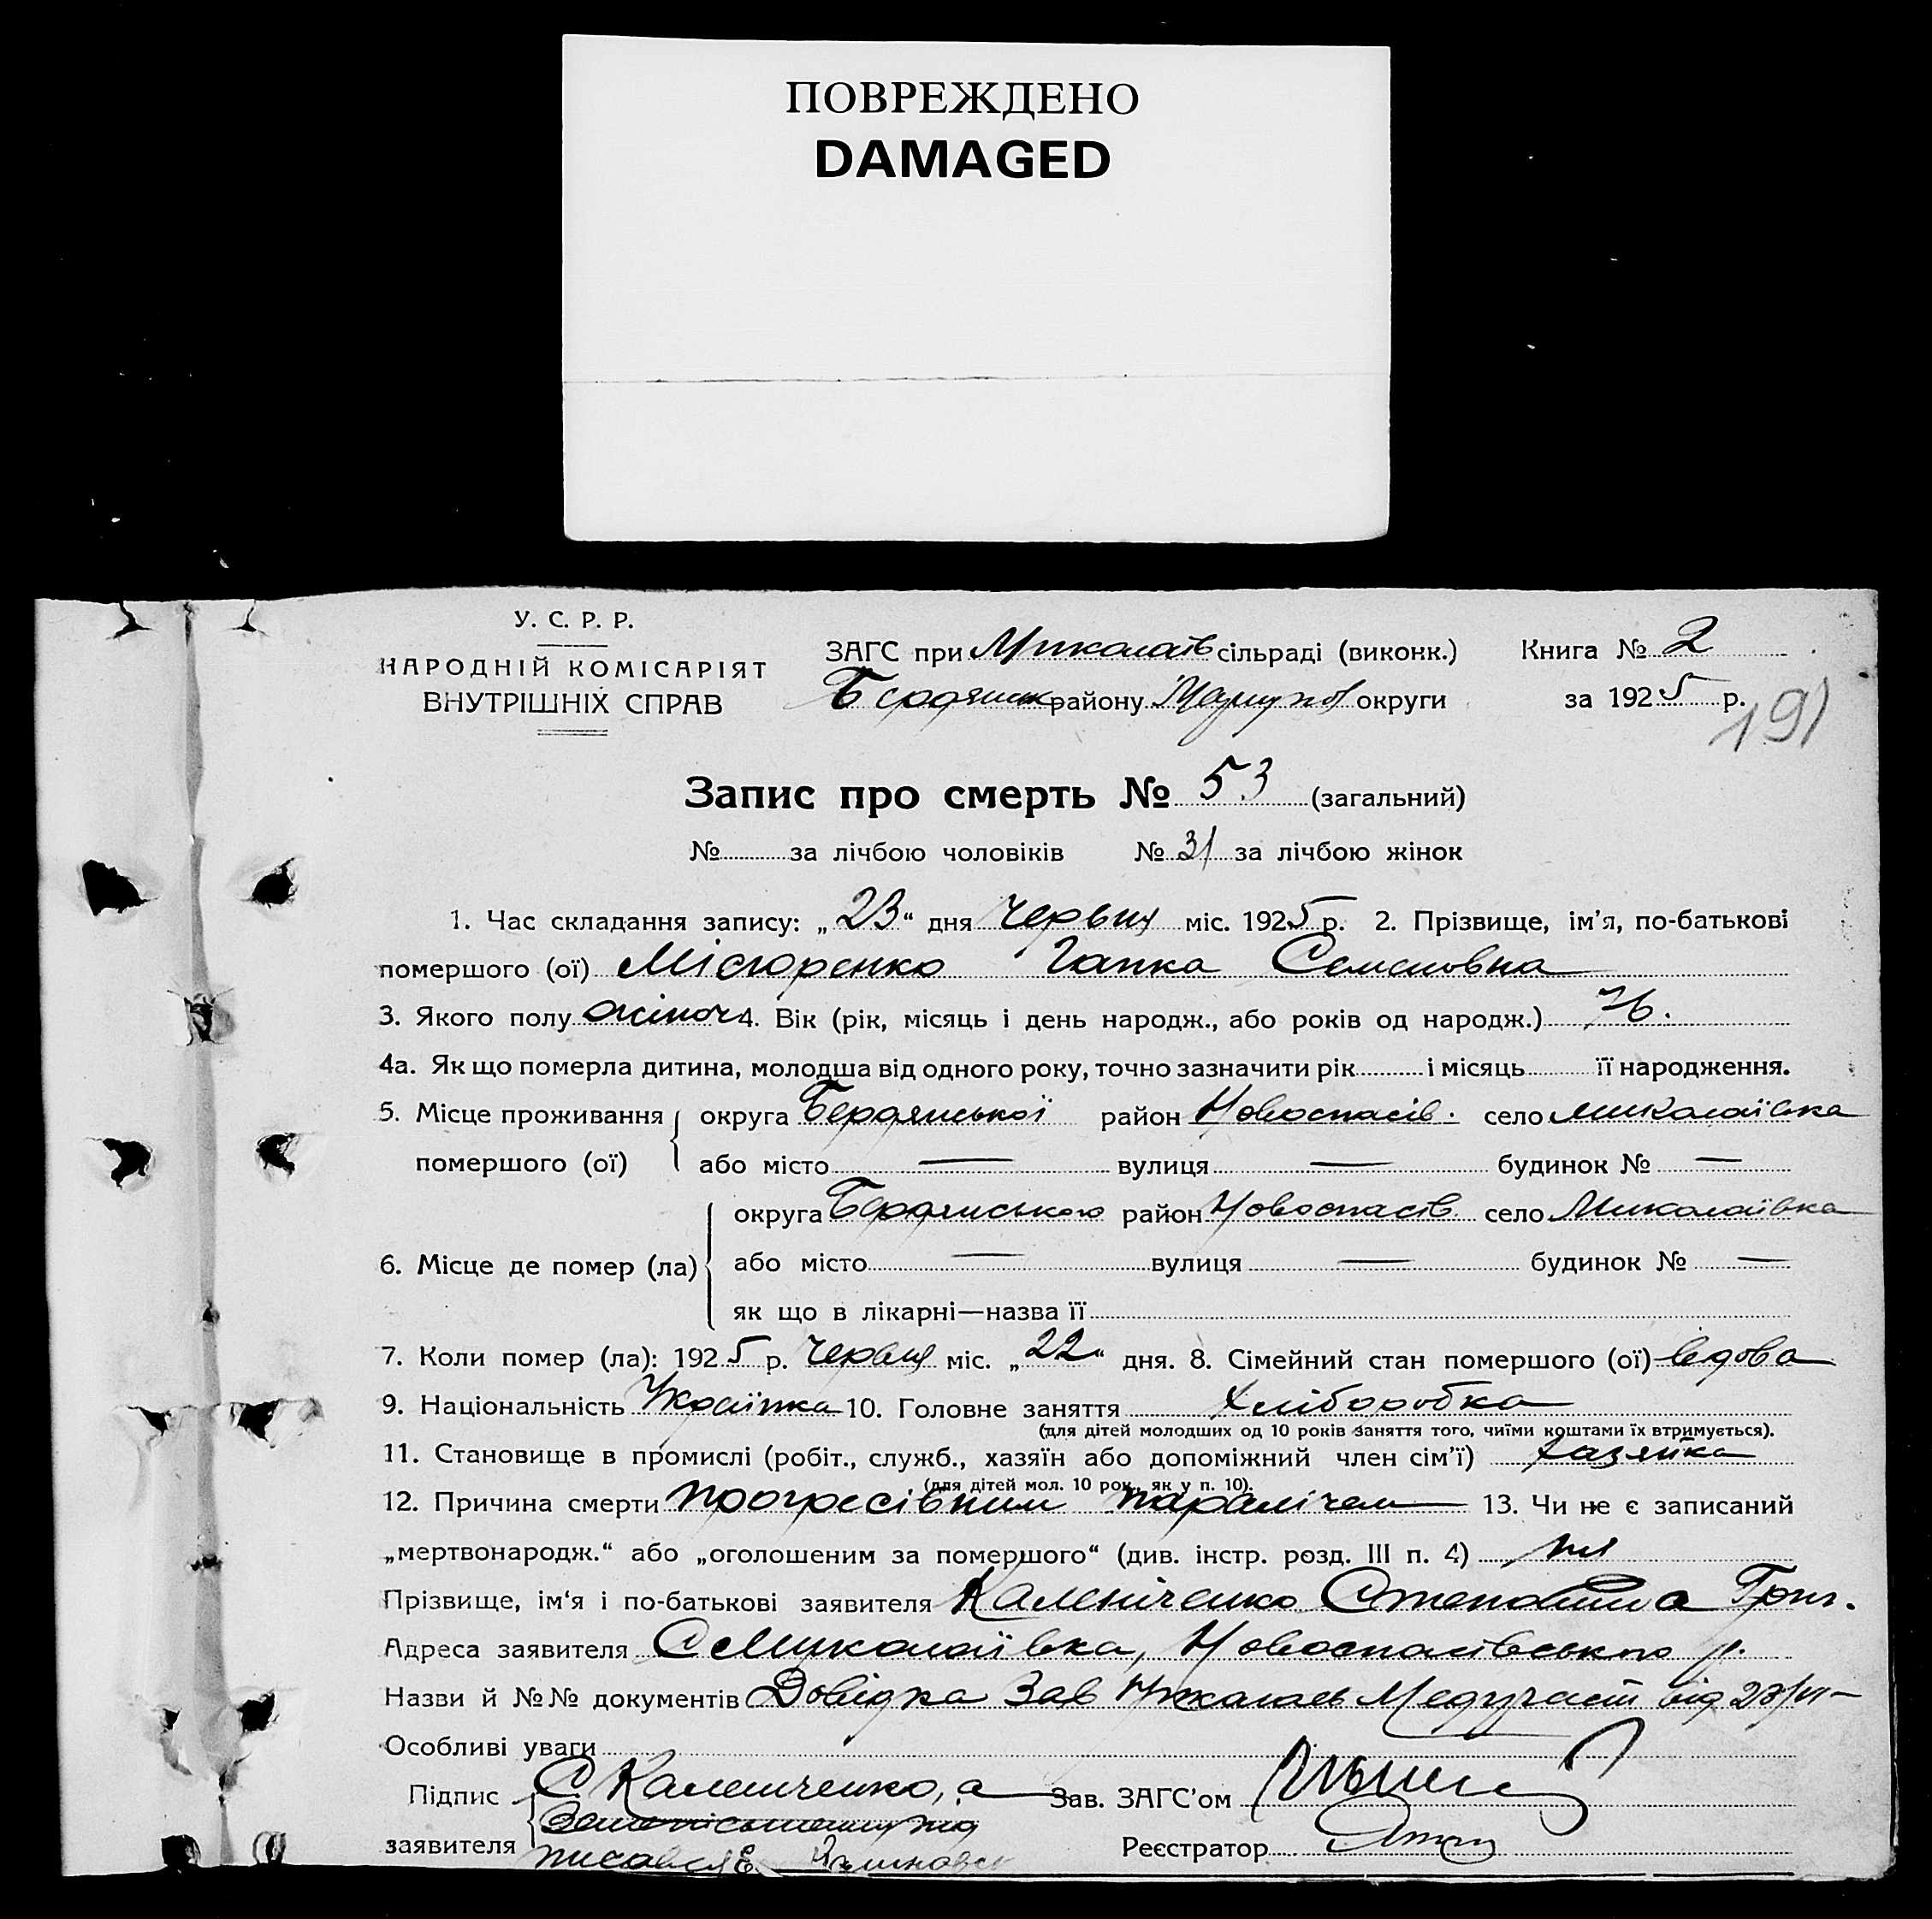 ПОВРЕЖДЕНО
DAMAGED
У. С. Р. Р.
НАРОДНІЙ КОМІСАРІЯТ
ВНУТРІШНІХ СПРАВ
ЗАГС при Миколаїв сільраді (виконк.)
Бердянськ району Маріуполь округи
Книга № 2
за 1925 р.
191
Запис про смерть № 53 (загальний)
№ за лічбою чоловіків № 31 за лічбою жінок
1. Час складання запису: „23“ дня червня міс. 1925 р. 2. Прізвище, ім’я, по-батькові
помершого (ої) Гапка Семеновна
3. Якого полу жіноч 4. Вік (рік, місяць і день народж., або років од народж.) 76.
4а. Як що померла дитина, молодша від одного року, точно зазначити рік і місяць її народження.
5. Місце проживання округа Бердянської район Новоспасів. село Миколаївка
помершого (ої) або місто — вулиця — будинок № —
округа Бердянською район Новоспасів. село Миколаївка
6. Місце де помер (ла) або місто — вулиця — будинок № —
як що в лікарні—назва її
7. Коли помер (ла): 1925 р. червня міс. „22“ дня. 8. Сімейний стан помершого (ої) вдова
9. Національність Українка 10. Головне заняття Хліборобка
(для дітей молодших од 10 років заняття того, чиїми коштами їх втримується).
11. Становище в промислі (робіт., служб., хазяїн або допоміжний член сім’ї) хазяйка
(для дітей мол. 10 рок., як у п. 10).
12. Причина смерти прогресівним паралічем 13. Чи не є записаний
„мертвонародж.“ або „оголошеним за помершого“ (див. інстр. розд. III п. 4) ні
Прізвище, ім‘я і по-батькові заявителя Каленіченко Григ.
Адреса заявителя с Миколаївка, Новоспасівського р.
Назви й №№ документів Довідка Зав від 23/VI
Особливі уваги
Підпис С Каленіченко, а
заявителя
Зав. ЗАГС’ом
Реєстратор